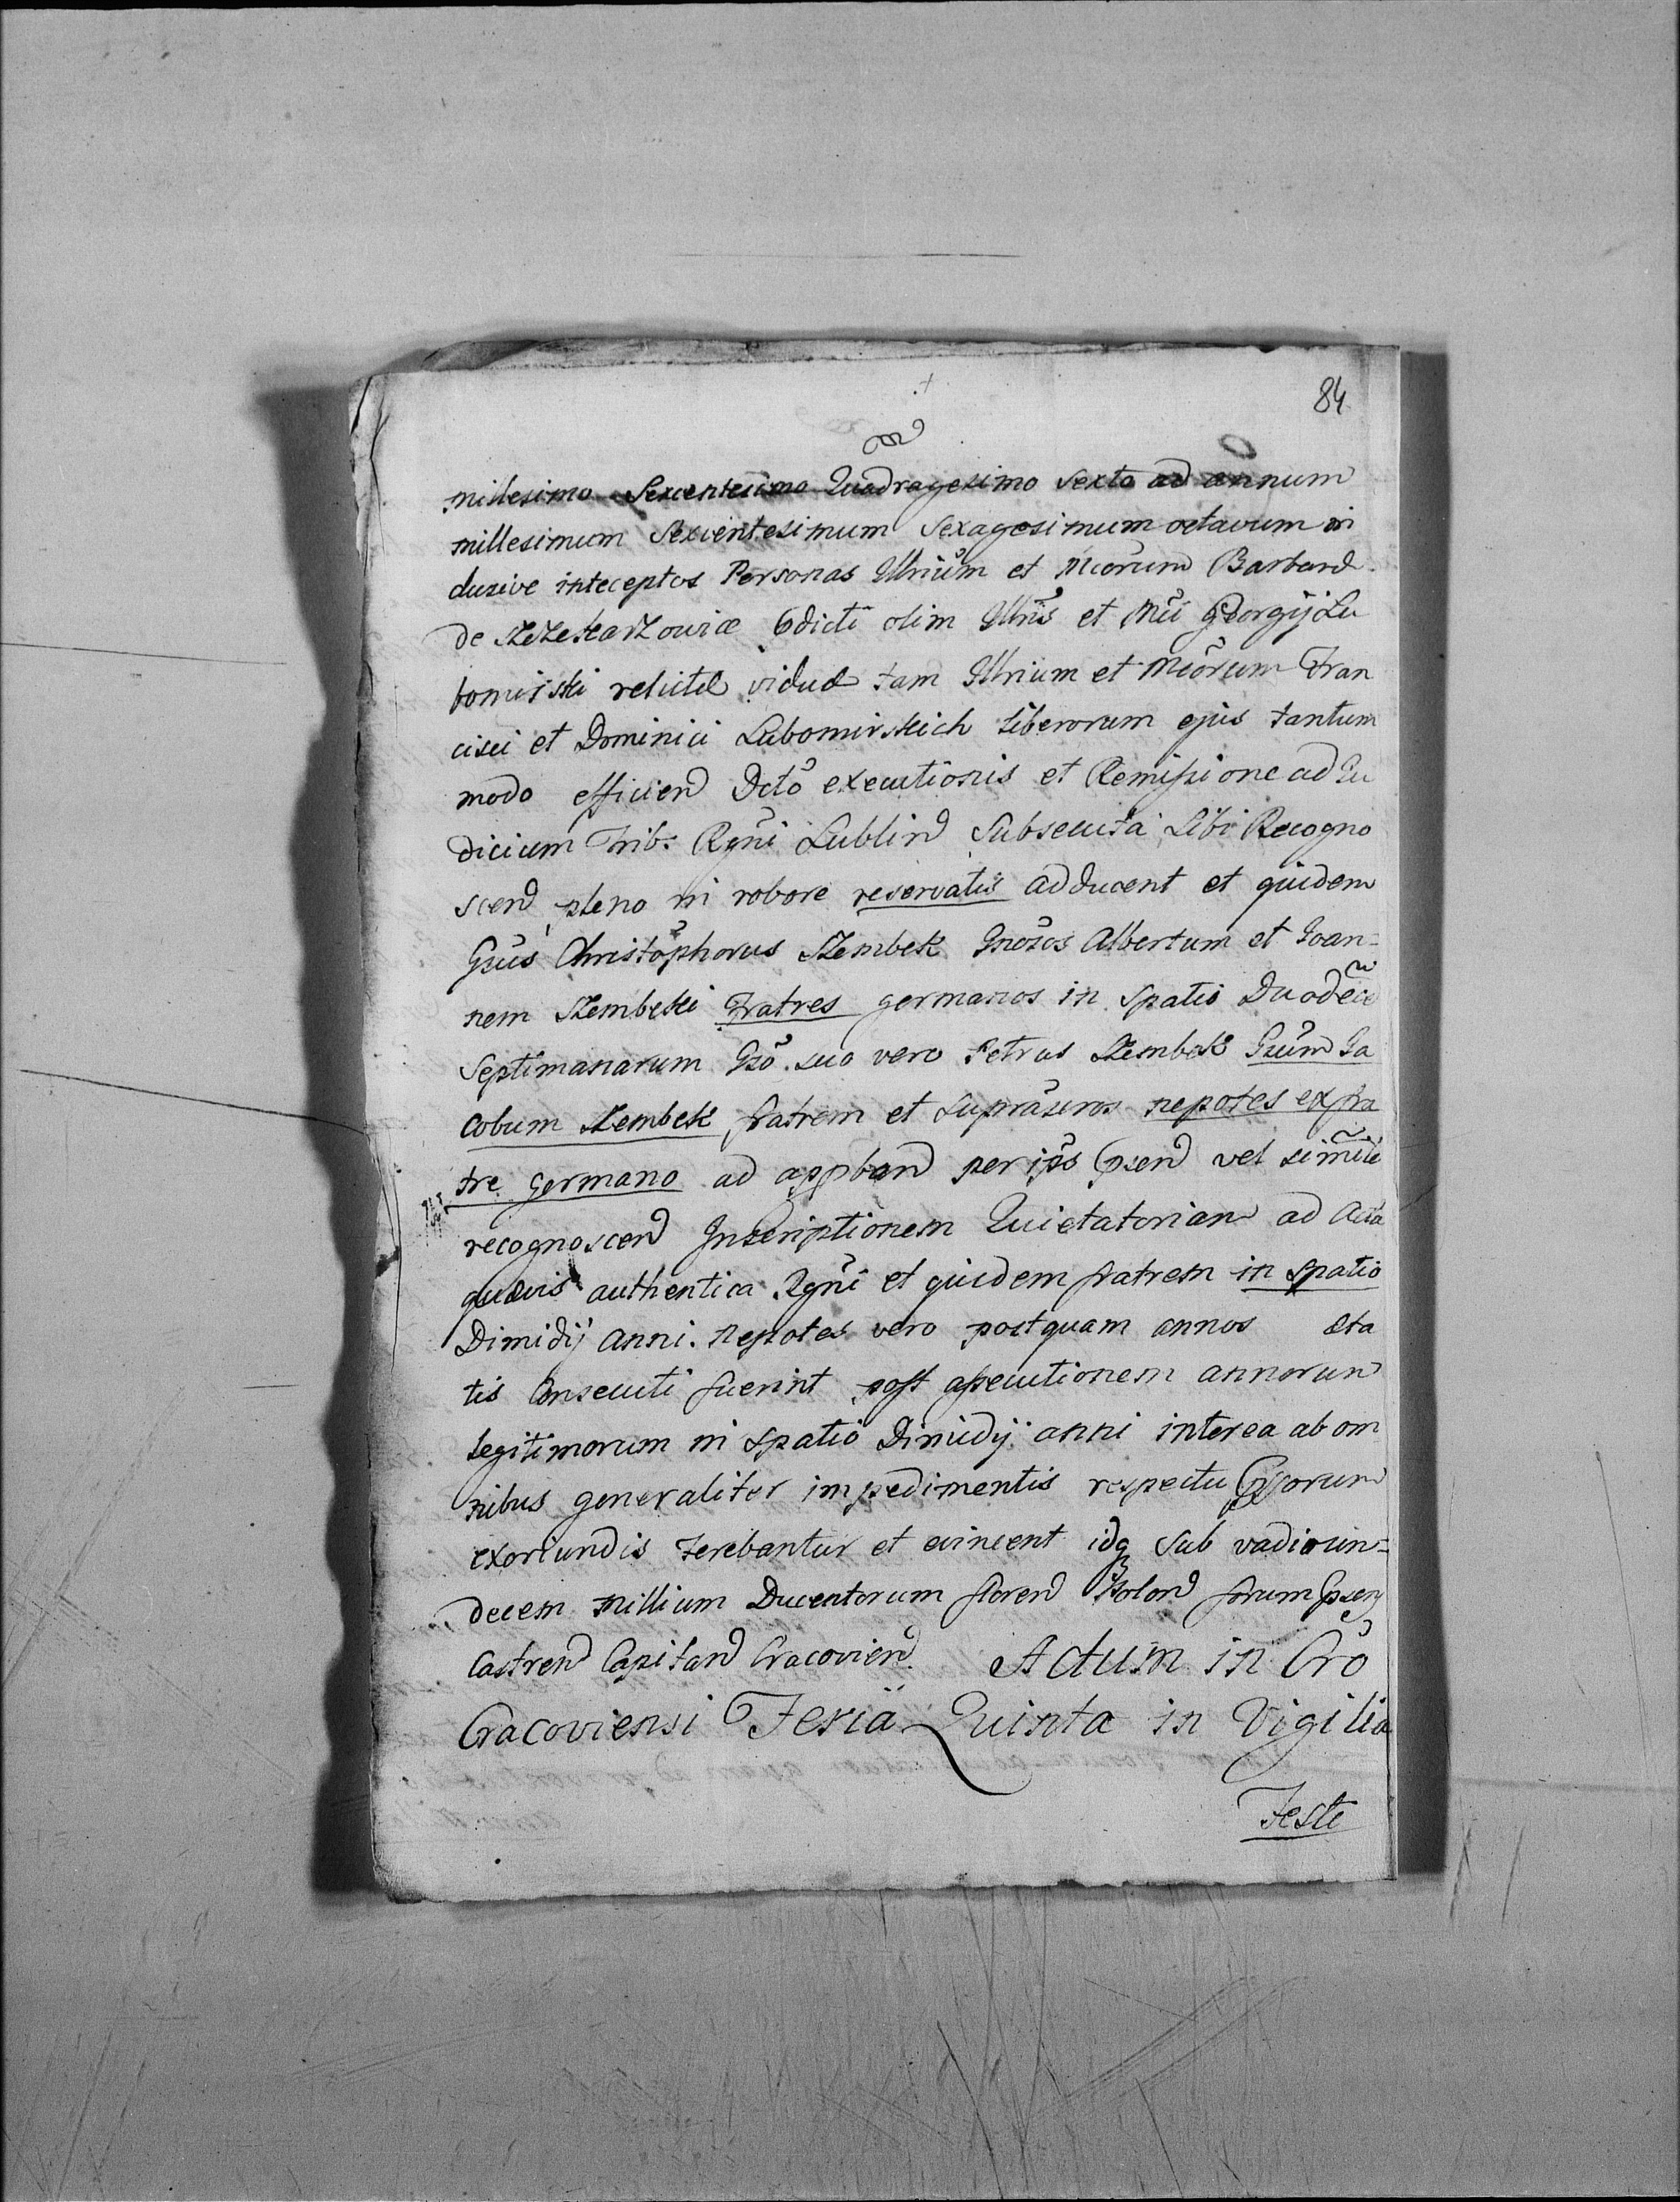 84
millesimo Sexentesimo Quadragesimo Sexto ad annum
millesimum Sexientesimum Sexagesimum octavum in
clusive inteceptos Personas Illrium et Mcorum Barbard
de olim Illris et Mci Georgij Lu
bomirski vidud tam Illrium et Mcorum Fran
cisci et Dominici Lubomirskich liberorum ejus tantum
modo efficien Dcto executionis et Remissione ad Ju
dicium Trib: Regni Lublin Subsecuta Sibi Recogno
scen pleno in robore reservatis adducent et quidem
Gsus Christophorus Szembek Gnosos Albertum et Joan=
nem Szembeki Fratres germanos in Spatio Duodecē
Septimanarum Gso suo vero Petrus Szembek Gsum Ja
cobum Szembek fratrem et nepotes ex fra
tre germano ad appban per ips psen vel
recognoscen Inscriptionem Quietatoriam ad Acta
quævis authentica Regni et quidem fratrem in Spatio
Dimidij Anni. Nepotes vero postquam annos æta
tis Consecuti fuerint post assecutionem annorum
legitimorum in Spatio Dimidij anni interea ab om
nibus generaliter impedimentis respectu
exoriundis tenebantur et evincent idq sub vadio un=
decem millium Ducentorum floren Polon
Castren Capitan Cracovien. Actum in Cro
Cracoviensi Feria Quinta in Vigilia
Feste